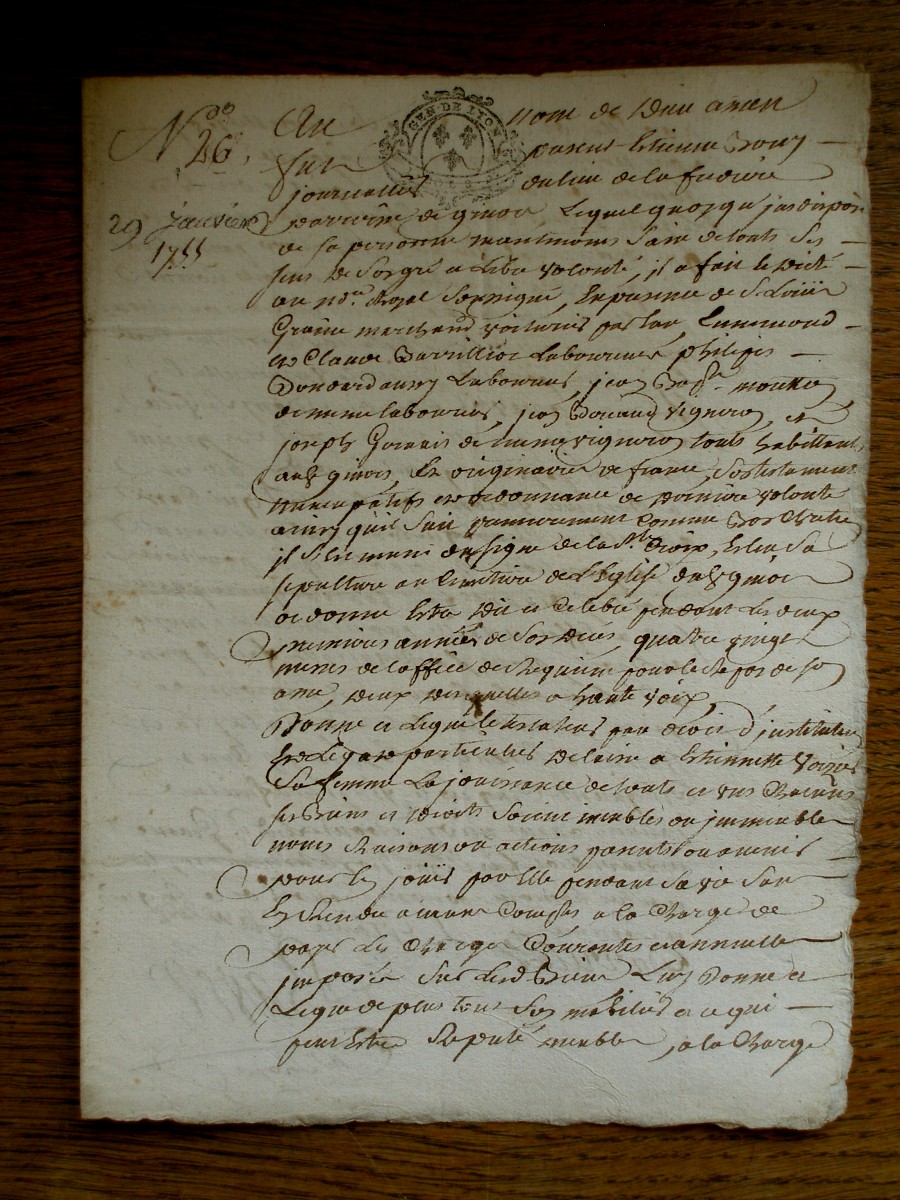 N° 26.
29 janvier
1755
GEN. DE LYON
Au nom de Dieu amen
fut present Etienne
journallier du lieu de la
parroisse de lequel quoyqu'jndispozé
de sa personne neantmoins sain de touts ses
sens de son gré et libre volonté, il a fait et dicté
au no.re Royal soussigné, En presence de Sr Loüis
marchand voiturier par eau,
et Claude laboureur, philipes
laboureur, jean Bap.te
de meme laboureur, jean vigneron, et
joseph de meme vigneron touts habittants
aud. Et originaires de france, son testament
nuncupatif et ordonnance de derniere volonté
ainsy qu'il suit premierement comme bon Chretien
il s'est muni du signe de la Ste Croix, Eslit sa
sepulture au Cimetiere de L'Eglise dud.
ordonne Estre dit et celebré pendant les deux
premieres années de son deces, quatre vingt
messes de l'office de Requiem pour le Repos de son
ame, deux desquelles a haute voix,
Donne et Legue le testateur par droit d'jnstitution
et Legat particulier a Etiennette
sa femme La jouissance de touts et uns Chacuns
ses Biens et droits soient meubles ou jmmeubles
noms Raisons ou actions presents ou avenir
pour En joüir par Elle pendant sa vie sans
En Rendre aucun Compte, a la Charge de
payer Les Charges Courantes et annuelles
jmposés sur lesd. Biens Luy Donne et
Legue de plus tous ses mobiliers et ce qui
peut Estre Reputé meuble, a la Charge